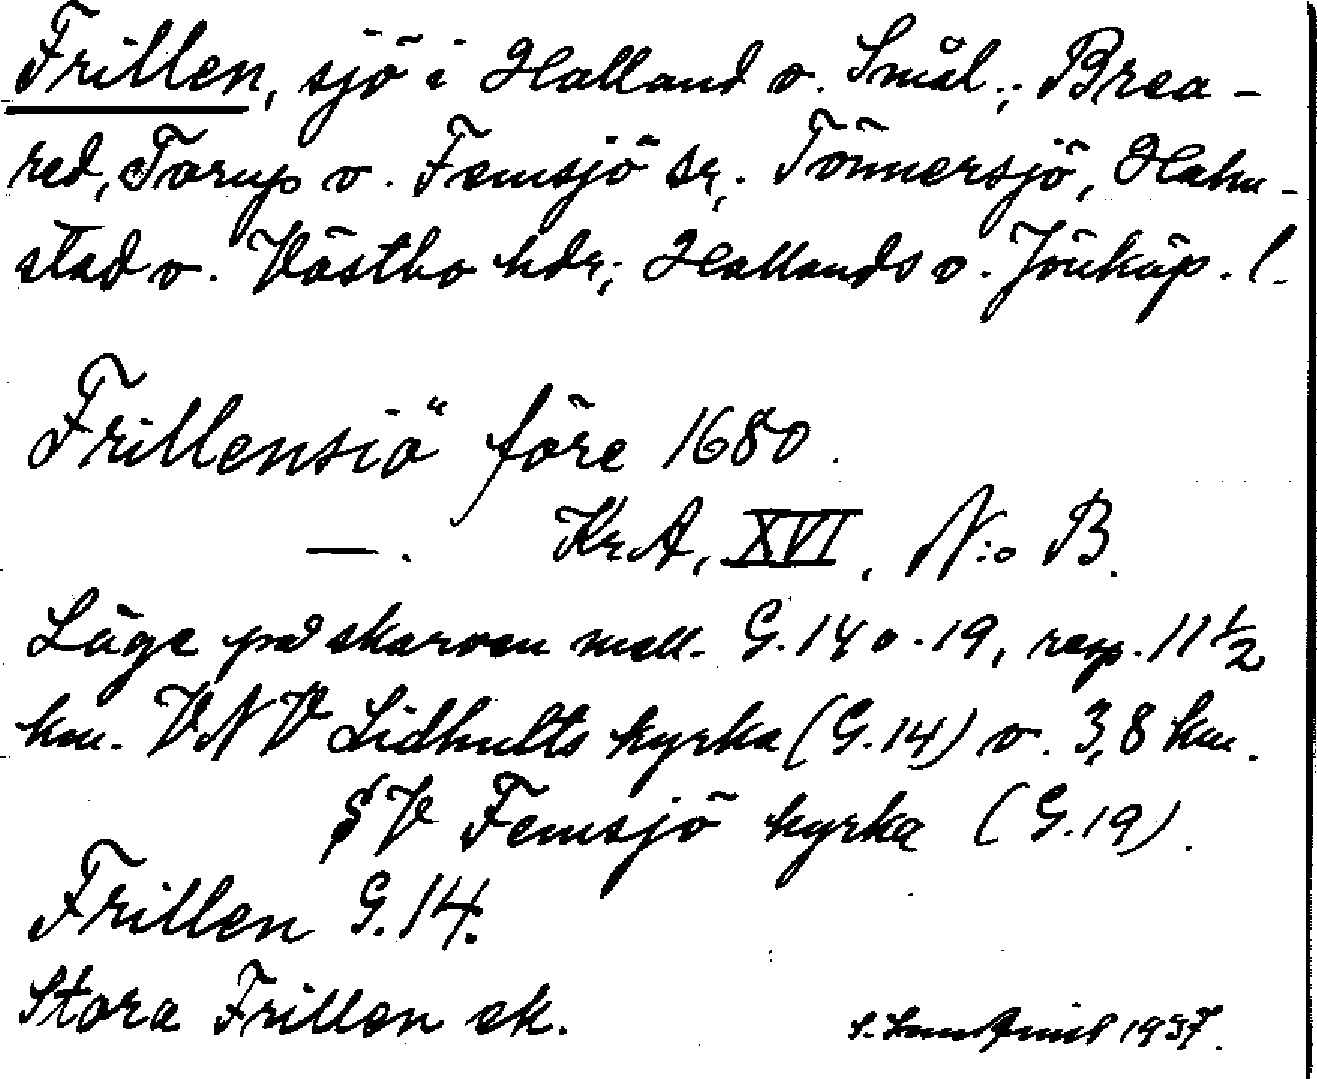 Frillen, sjö i Halland o. Smål.; Brea-
red, Torup o. Femsjö sr, Tönnersjö, Halm-
stad o. Västbo hdr; Hallands o. Jönköp. l.
Frillensiö före 1680.
—. KrA, XVI, N:o B.
Läge på skarven mell. G.14 o. 19, resp. 11 1/2
km. VNV Lidhults kyrka (G.14) o. 3,8 km.
SV Femsjö kyrka (G.19).
Frillen G.14.
Stora Frillen ek.
1937.